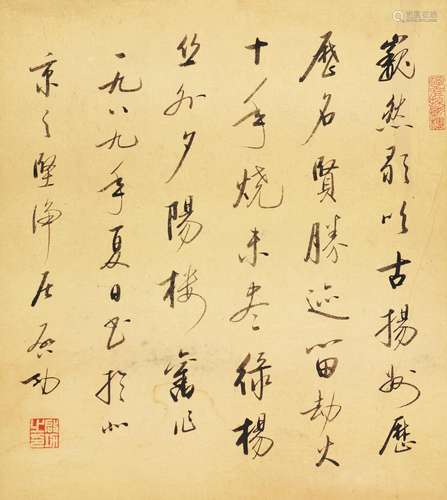 巍然歌吹古揚州歷
歷名賢勝迹留劫火
十年燒未盡綠楊
丝外夕陽樓 舊作
一九八九年夏日书於北
京之堅净居 启功